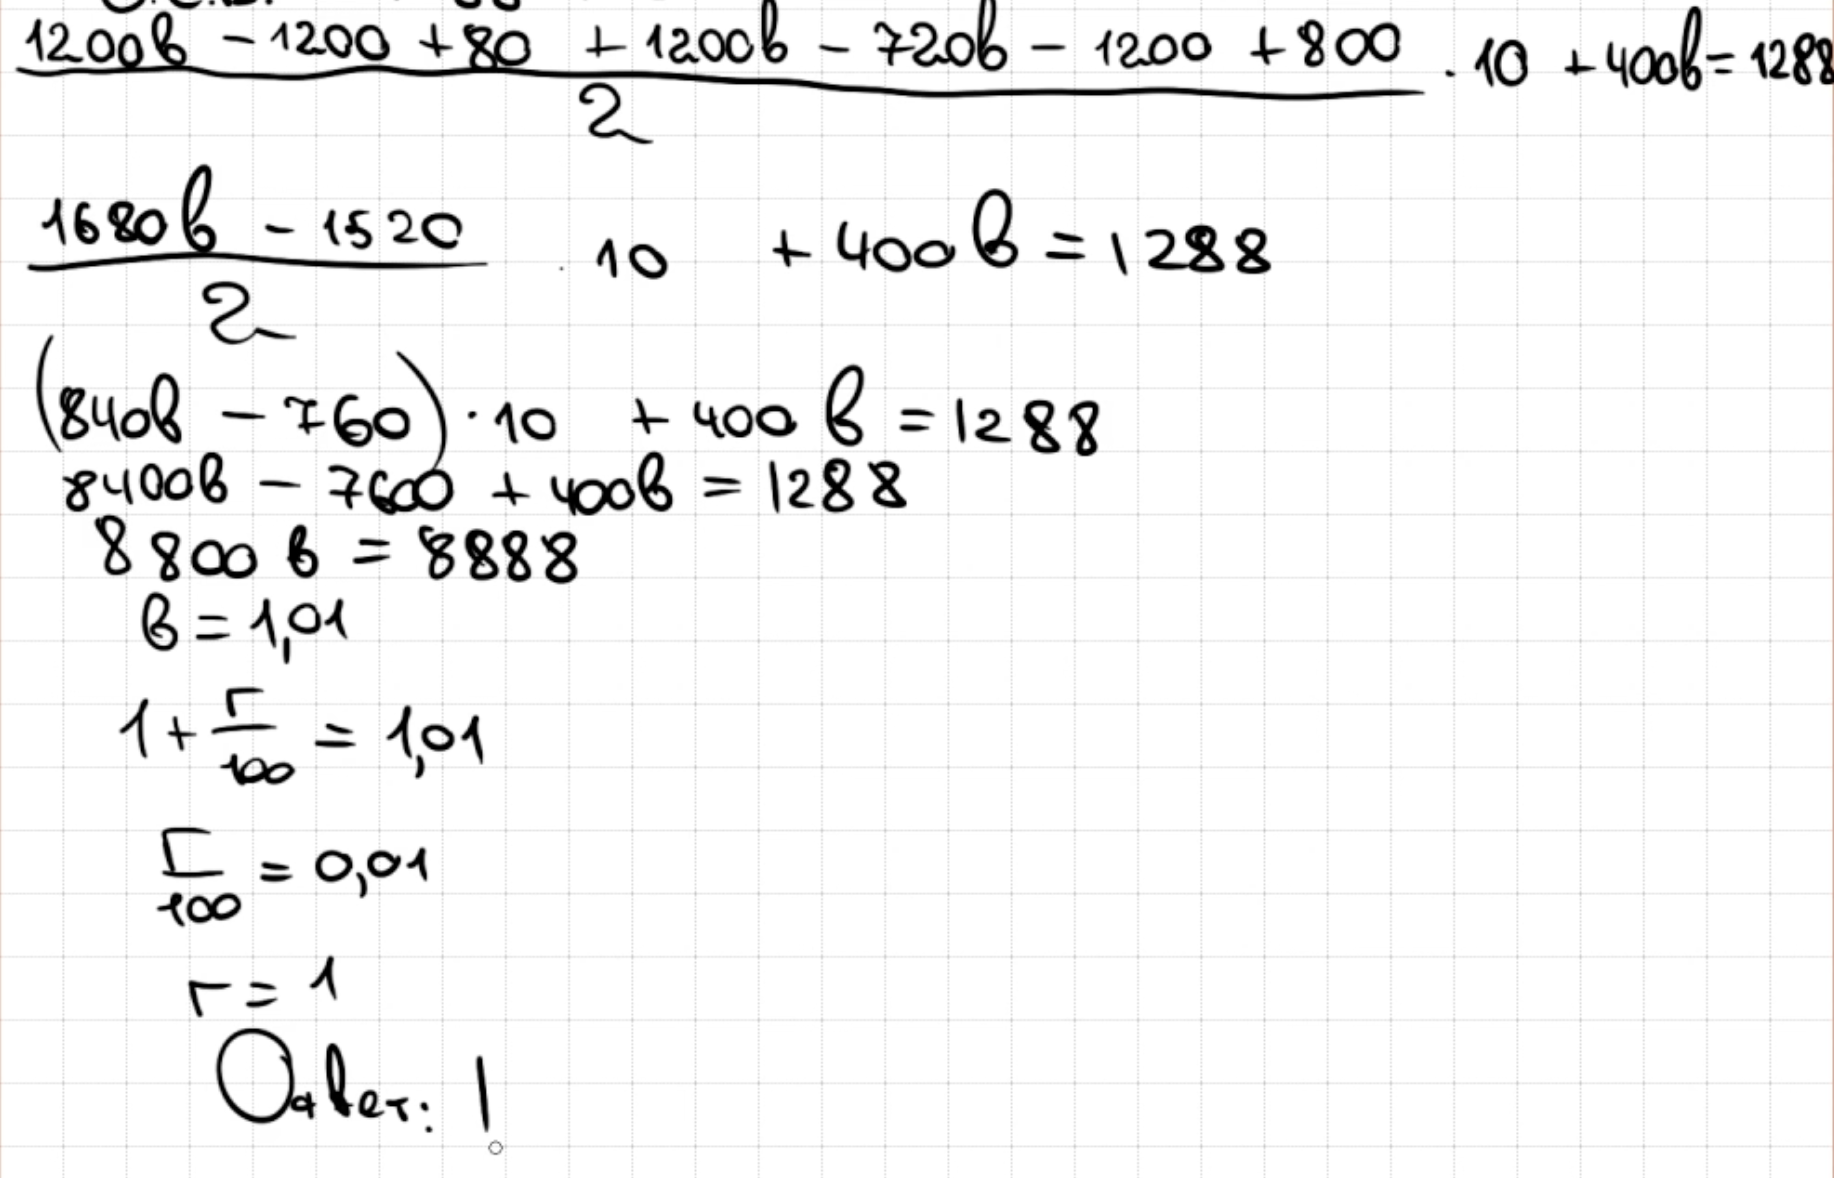 1200в - 1200 + 80 + 1200в - 720в - 1200 + 800
· 10 + 400в = 1288
2
1680в - 1520
· 10 + 400в = 1288
2
(840в - 760) · 10 + 400в = 1288
8400в - 7600 + 400в = 1288
8800в = 8888
в = 1,01
1 + r/100 = 1,01
r/100 = 0,01
r = 1
Ответ: 1